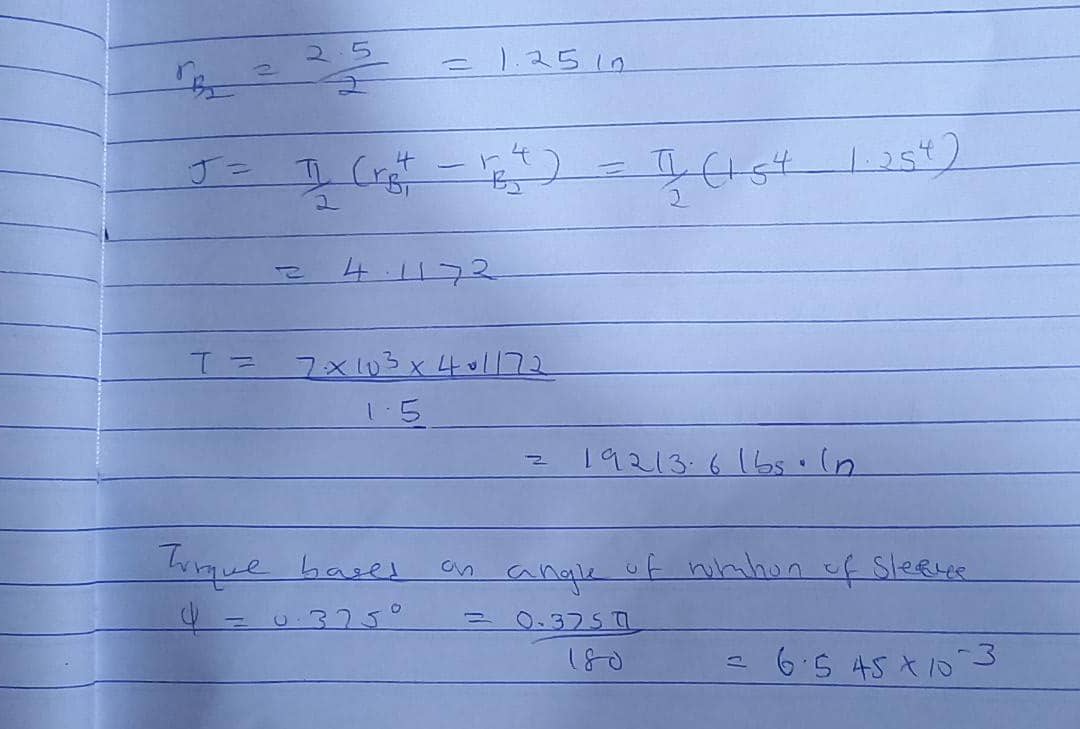 r_B₂ = 2.5/2 = 1.25 in
J = π/2 (r_B₁⁴ - r_B₂⁴) = π/2 (1.5⁴ - 1.25⁴)
= 4.1172
T = 7×10³ × 4.1172 / 1.5
= 19213.6 lbs.in
Torque bases on angle of rotation of sleeve
φ = 0.375° = 0.375π/180 = 6.545 × 10⁻³